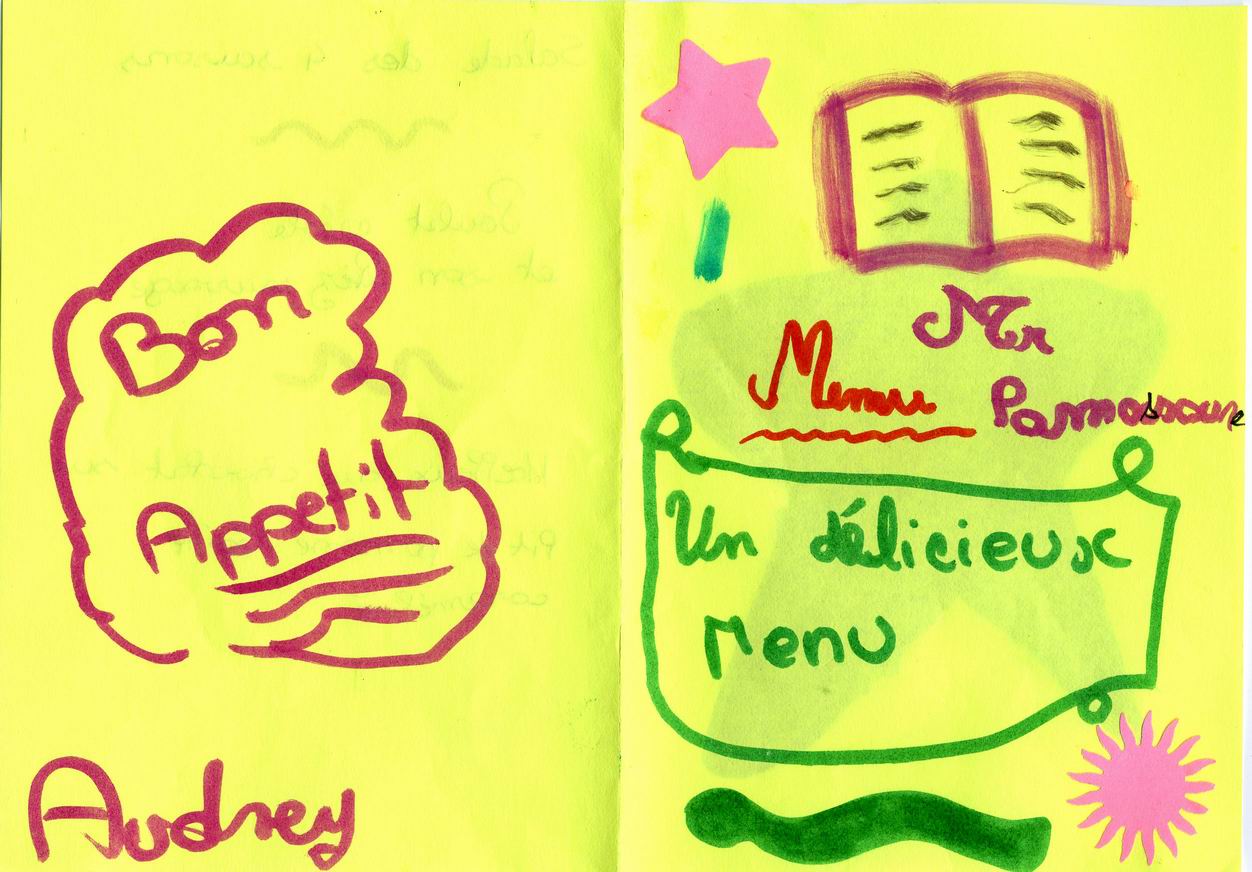 Bon
Appetit
Audrey
Mr
Menu
Un délicieux
Menu